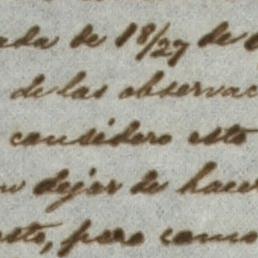 ada de 18/27 de
de las observac
considero esto
dejar de hace
esto, pero como